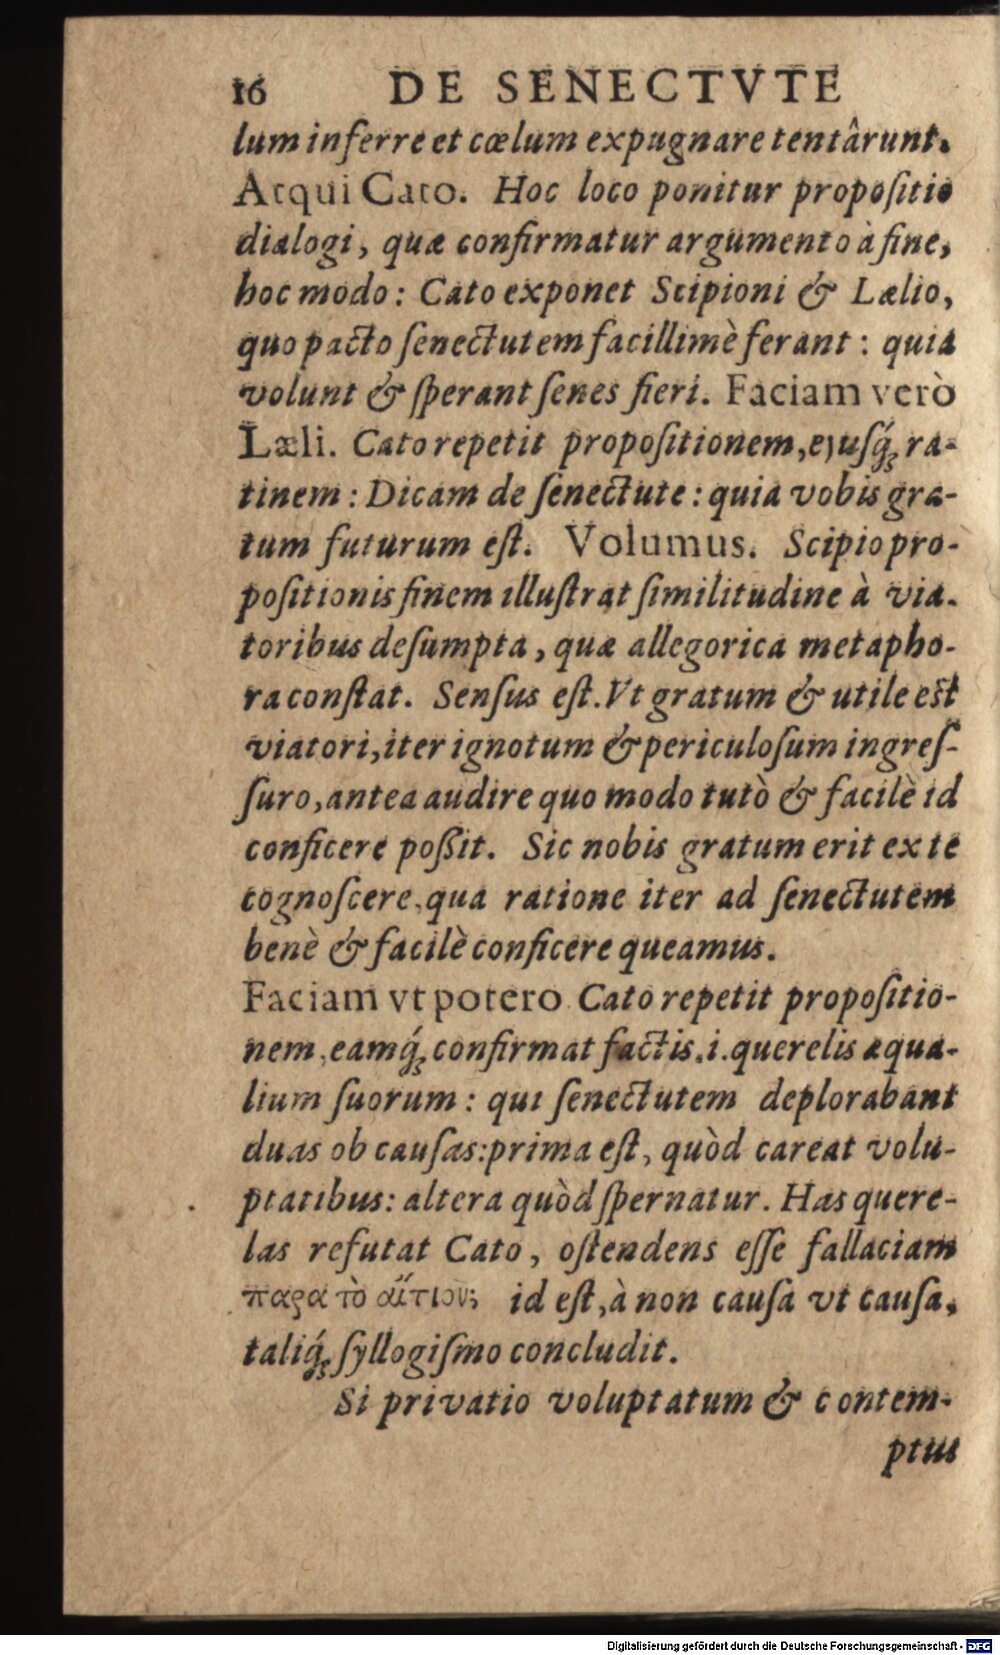 16 DE SENECTVTE
lum inferre et cœlum expugnare tentârunt.
Atqui Cato. Hoc loco ponitur propoſitio
dialogi, quæ confirmatur argumento à fine,
hoc modo: Cato exponet Scipioni & Lælio,
quo pacto ſenectutem facillimè ferant: quia
volunt & ſperant ſenes fieri. Faciam verò
Læli. Cato repetit propoſitionem, ejuſq́ʒ ra-
tinem: Dicam de ſenectute: quia vobis gra-
tum futurum eſt. Volumus. Scipio pro-
poſitionis finem illuſtrat ſimilitudine à via-
toribus deſumpta, quæ allegorica metapho-
ra conſtat. Senſus eſt. Vt gratum & utile est
viatori, iter ignotum & periculoſum ingreſ-
ſuro, antea audire quo modo tutò & facilè id
conficere poßit. Sic nobis gratum erit ex te
cognoſcere, qua ratione iter ad ſenectutem
benè & facilè conficere queamus.
Faciam vt potero Cato repetit propoſitio-
nem, eamq́ʒ confirmat factis, i. querelis æqua-
lium ſuorum: qui ſenectutem deplorabant
duas ob cauſas: prima eſt, quòd careat volu-
ptatibus: altera quòd ſpernatur. Has quere-
las refutat Cato, oſtendens eſſe fallaciam
παρα τὸ αἴτιον; id eſt, à non cauſa vt cauſa,
taliq́ʒ ſyllogiſmo concludit.
Si privatio voluptatum & contem-
ptus
Digitalisierung gefördert durch die Deutsche Forschungsgemeinschaft - DFG